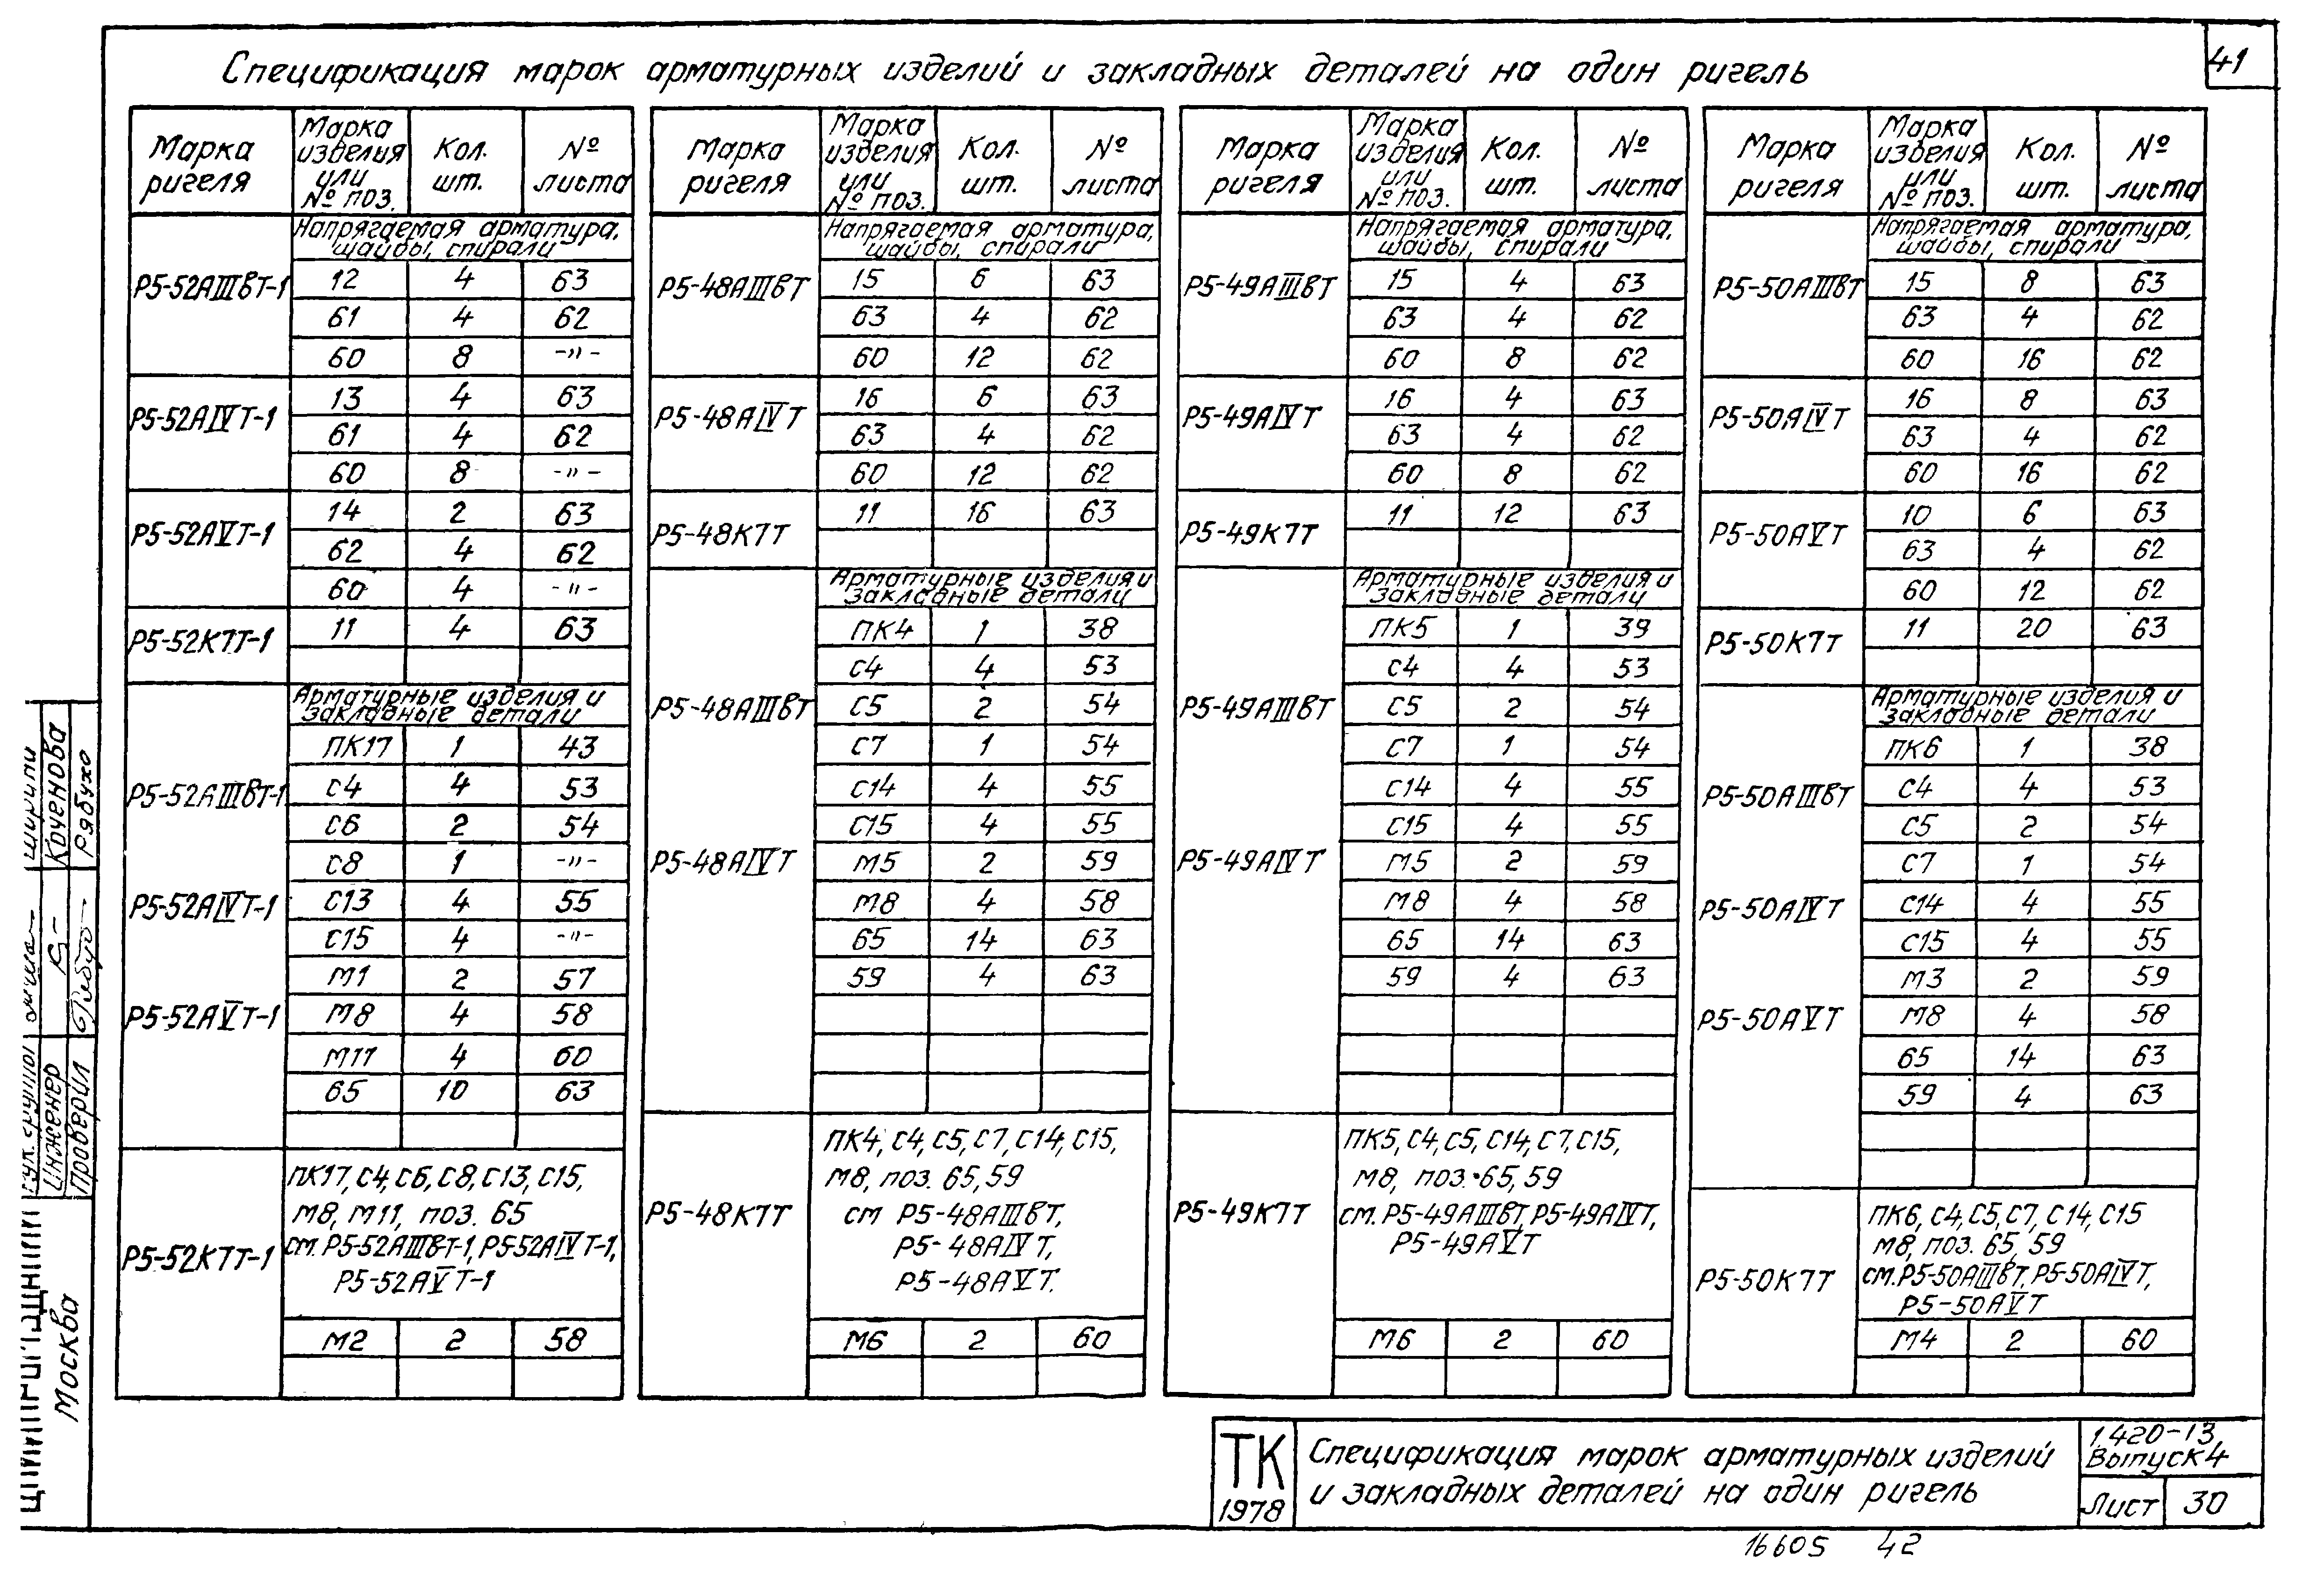 41
Спецификация марок арматурных изделий и закладных деталей на один ригель
Марка ригеля | Марка изделия или № поз. | Кол. шт. | № листа
Напрягаемая арматура, шайбы, спирали
Р5-52АIIIвТ-1 | 12 | 4 | 63
61 | 4 | 62
60 | 8 | -"-
Р5-52АIVТ-1 | 13 | 4 | 63
61 | 4 | 62
60 | 8 | -"-
Р5-52АVТ-1 | 14 | 2 | 63
62 | 4 | 62
60 | 4 | -"-
Р5-52К7Т-1 | 11 | 4 | 63
Арматурные изделия и закладные детали
ПК17 | 1 | 43
Р5-52АIIIвТ-1 | С4 | 4 | 53
С6 | 2 | 54
С8 | 1 | -"-
Р5-52АIVТ-1 | С13 | 4 | 55
С15 | 4 | -"-
М1 | 2 | 57
Р5-52АVТ-1 | М8 | 4 | 58
М11 | 4 | 60
65 | 10 | 63
ПК17, С4, С6, С8, С13, С15,
М8, М11, поз. 65
Р5-52К7Т-1 | см. Р5-52АIIIвТ-1, Р5-52АIVТ-1,
Р5-52АVТ-1
М2 | 2 | 58
Марка ригеля | Марка изделия или № поз. | Кол. шт. | № листа
Напрягаемая арматура, шайбы, спирали
Р5-48АIIIвТ | 15 | 6 | 63
63 | 4 | 62
60 | 12 | 62
Р5-48АIVТ | 16 | 6 | 63
63 | 4 | 62
60 | 12 | 62
Р5-48К7Т | 11 | 16 | 63
Арматурные изделия и закладные детали
ПК4 | 1 | 38
С4 | 4 | 53
Р5-48АIIIвТ | С5 | 2 | 54
С7 | 1 | 54
С14 | 4 | 55
С15 | 4 | 55
Р5-48АIVТ | М5 | 2 | 59
М8 | 4 | 58
65 | 14 | 63
59 | 4 | 63
ПК4, С4, С5, С7, С14, С15,
М8, поз. 65, 59
Р5-48К7Т | см Р5-48АIIIвТ,
Р5-48АIVТ,
Р5-48АVТ.
М6 | 2 | 60
Марка ригеля | Марка изделия или № поз. | Кол. шт. | № листа
Напрягаемая арматура, шайбы, спирали
Р5-49АIIIвТ | 15 | 4 | 63
63 | 4 | 62
60 | 8 | 62
Р5-49АIVТ | 16 | 4 | 63
63 | 4 | 62
60 | 8 | 62
Р5-49К7Т | 11 | 12 | 63
Арматурные изделия и закладные детали
ПК5 | 1 | 39
С4 | 4 | 53
Р5-49АIIIвТ | С5 | 2 | 54
С7 | 1 | 54
С14 | 4 | 55
С15 | 4 | 55
Р5-49АIVТ | М5 | 2 | 59
М8 | 4 | 58
65 | 14 | 63
59 | 4 | 63
ПК5, С4, С5, С14, С7, С15,
М8, поз. 65, 59
Р5-49К7Т | см. Р5-49АIIIвТ, Р5-49АIVТ,
Р5-49АVТ
М6 | 2 | 60
Марка ригеля | Марка изделия или № поз. | Кол. шт. | № листа
Напрягаемая арматура, шайбы, спирали
Р5-50АIIIвТ | 15 | 8 | 63
63 | 4 | 62
60 | 16 | 62
Р5-50АIVТ | 16 | 8 | 63
63 | 4 | 62
60 | 16 | 62
Р5-50АVТ | 10 | 6 | 63
63 | 4 | 62
60 | 12 | 62
Р5-50К7Т | 11 | 20 | 63
Арматурные изделия и закладные детали
ПК6 | 1 | 38
Р5-50АIIIвТ | С4 | 4 | 53
С5 | 2 | 54
С7 | 1 | 54
Р5-50АIVТ | С14 | 4 | 55
С15 | 4 | 55
М3 | 2 | 59
Р5-50АVТ | М8 | 4 | 58
65 | 14 | 63
59 | 4 | 63
ПК6, С4, С5, С7, С14, С15
М8, поз. 65, 59
Р5-50К7Т | см. Р5-50АIIIвТ, Р5-50АIVТ,
Р5-50АVТ
М4 | 2 | 60
ТК
1978
Спецификация марок арматурных изделий
и закладных деталей на один ригель
1.420-13
Выпуск 4
Лист 30
16605 42
Инженер Коченова
Проверил Рябухо
Москва